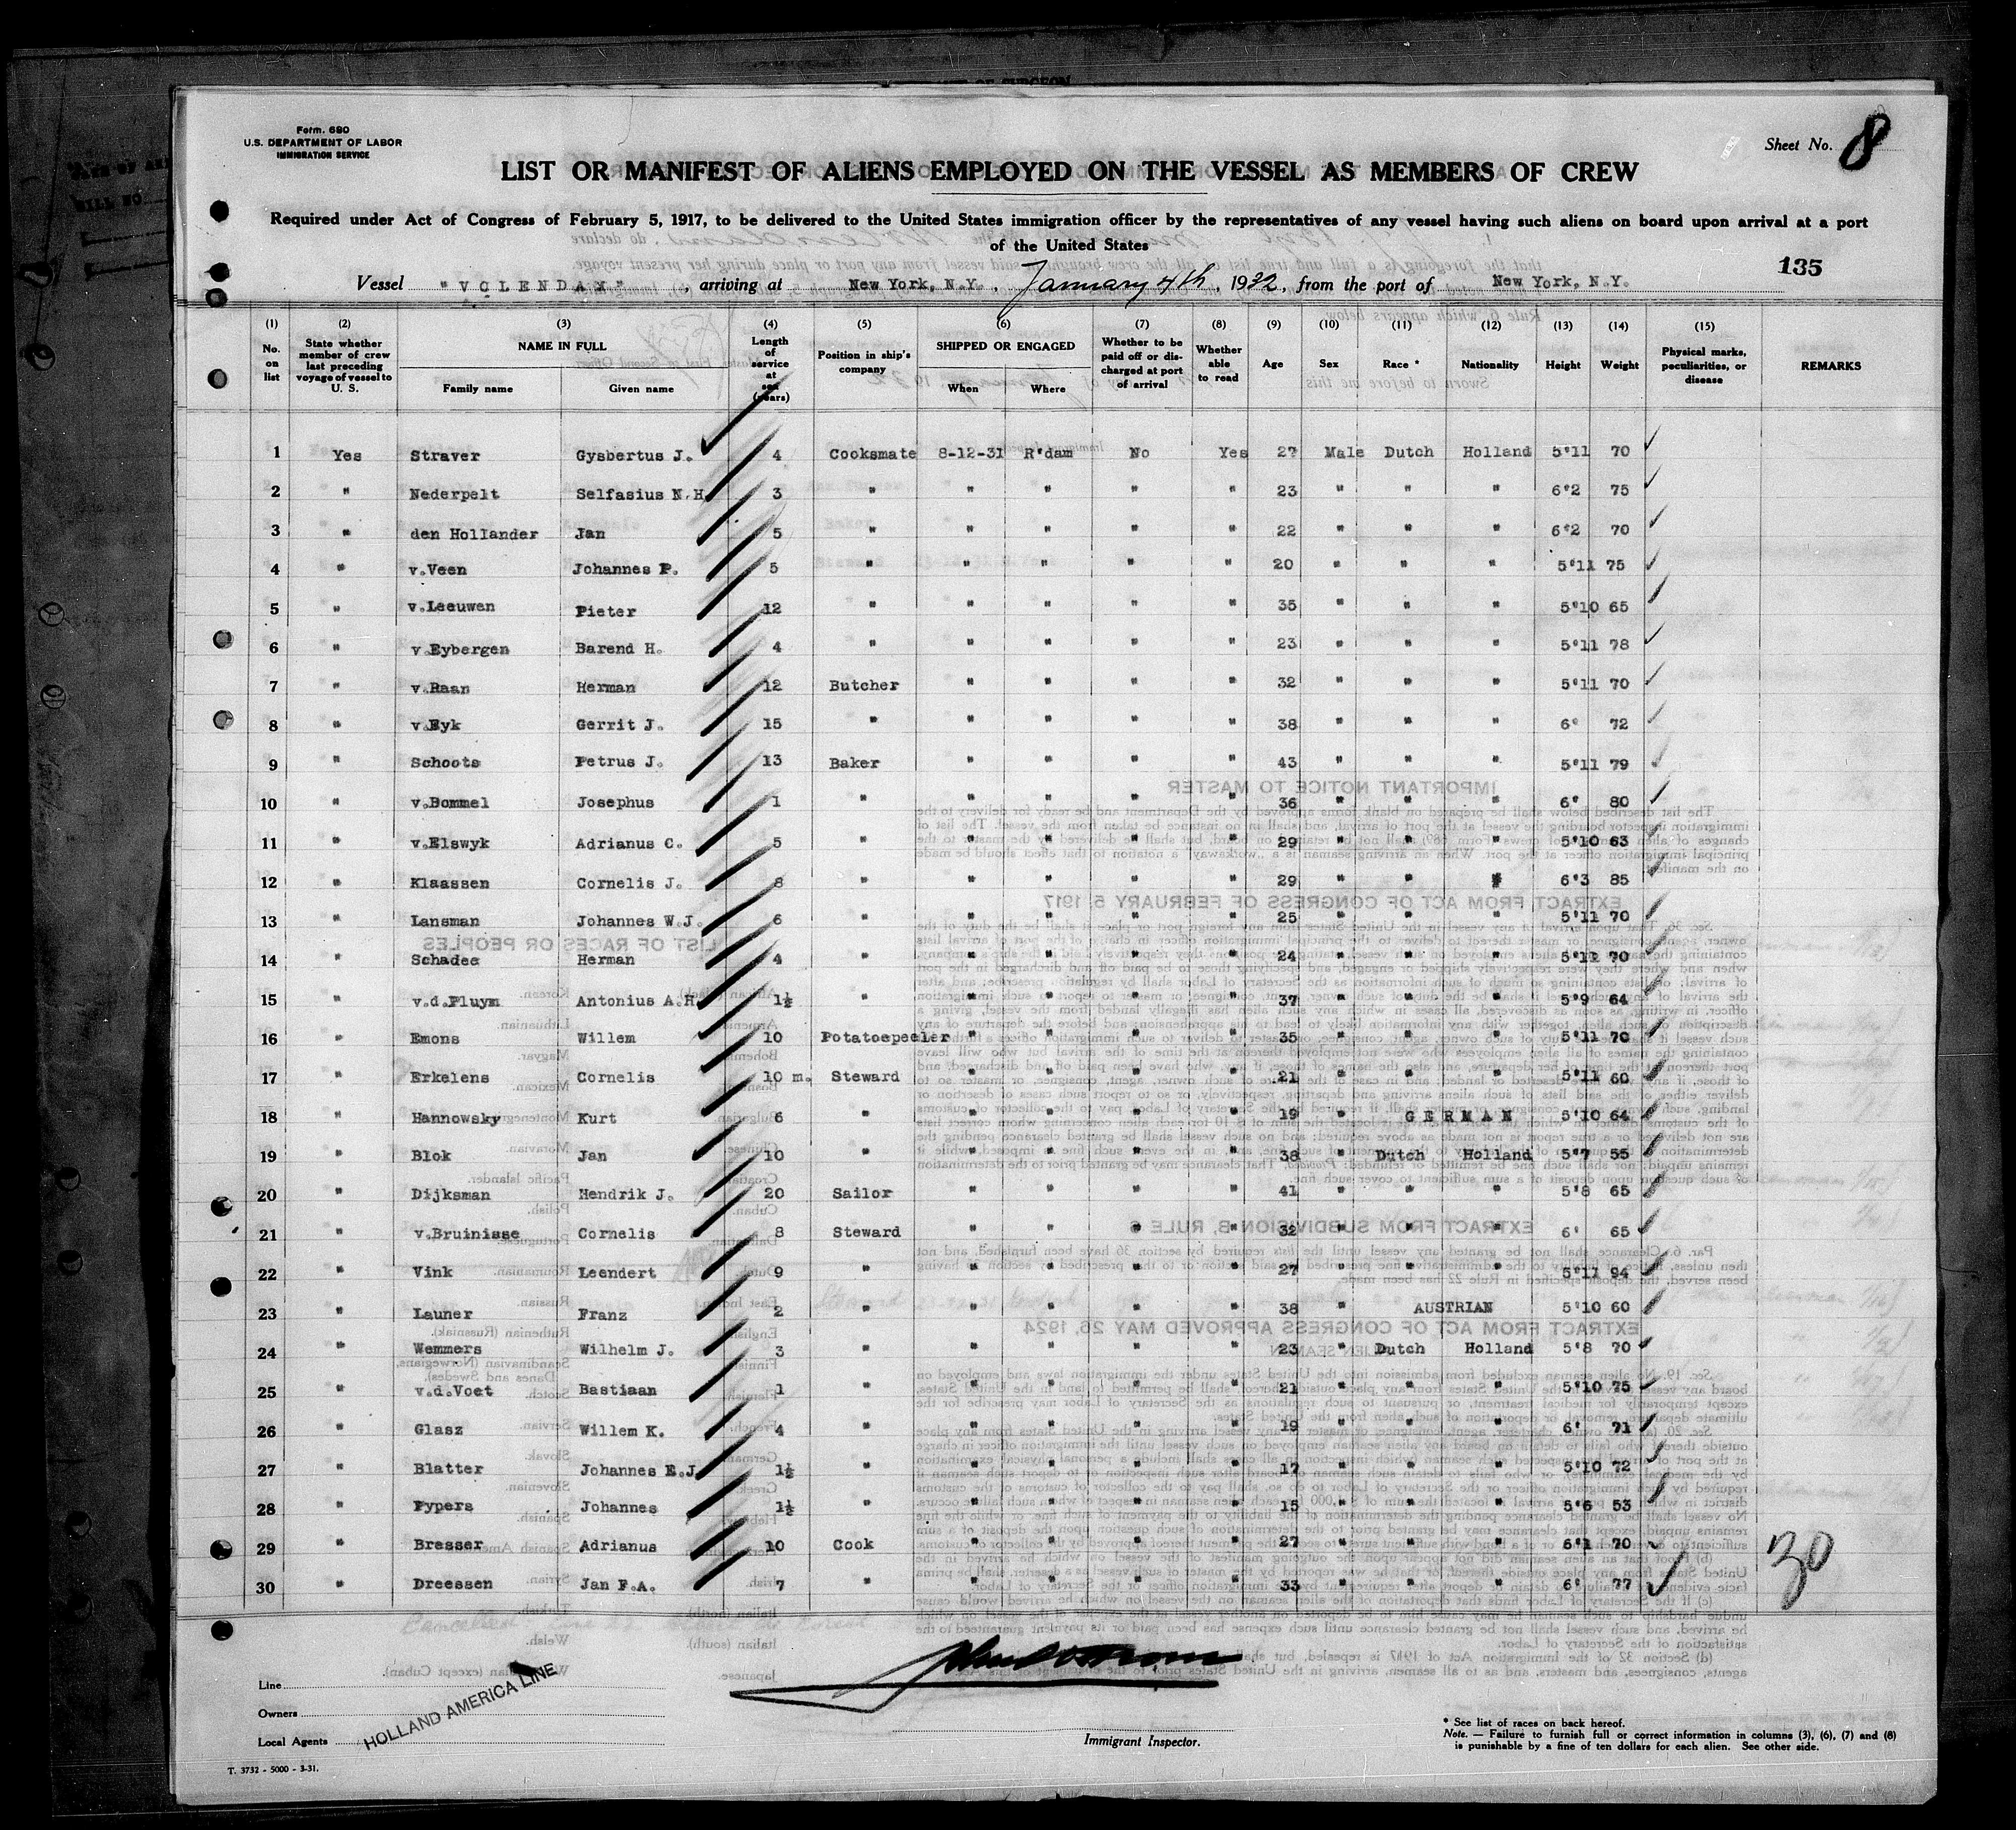 Form. 680
U.S. DEPARTMENT OF LABOR
IMMIGRATION SERVICE
Sheet No. 8
LIST OR MANIFEST OF ALIENS EMPLOYED ON THE VESSEL AS MEMBERS OF CREW
Required under Act of Congress of February 5, 1917, to be delivered to the United States immigration officer by the representatives of any vessel having such aliens on board upon arrival at a port
of the United States
135
Vessel "VOLENDAM", arriving at New York, N.Y., January 4th, 1932, from the port of New York, N.Y.
(1) (2) (3) (4) (5) (6) (7) (8) (9) (10) (11) (12) (13) (14) (15)
No. on list State whether member of crew last preceding voyage of vessel to U. S. NAME IN FULL Family name Given name Length of service at sea (years) Position in ship's company SHIPPED OR ENGAGED When Where Whether to be paid off or discharged at port of arrival Whether able to read Age Sex Race * Nationality Height Weight Physical marks, peculiarities, or disease REMARKS
1 Yes Straver Gysbertus J. 4 Cooksmate 8-12-31 R'dam No Yes 27 Male Dutch Holland 5'11 70
2 " Nederpelt Selfasius N.H. 3 " " " " " 23 " " " 6'2 75
3 " den Hollander Jan 5 " " " " " 22 " " " 6'2 70
4 " v.Veen Johannes P. 5 " " " " " 20 " " " 5'11 75
5 " v.Leeuwen Pieter 12 " " " " " 35 " " " 5'10 65
6 " v.Eybergen Barend H. 4 " " " " " 23 " " " 5'11 78
7 " v.Raan Herman 12 Butcher " " " " 32 " " " 5'11 70
8 " v.Eyk Gerrit J. 15 " " " " " 38 " " " 6' 72
9 " Schoots Petrus J. 13 Baker " " " " 43 " " " 5'11 79
10 " v.Bommel Josephus 1 " " " " " 36 " " " 6' 80
11 " v.Elswyk Adrianus C. 5 " " " " " 29 " " " 5'10 63
12 " Klaassen Cornelis J. 8 " " " " " 29 " " " 6'3 85
13 " Lansman Johannes W.J. 6 " " " " " 25 " " " 5'11 70
14 " Schadee Herman 4 " " " " " 24 " " " 5'11 70
15 " v.d.Pluym Antonius A.H. 1½ " " " " " 37 " " " 5'9 64
16 " Emons Willem 10 Potatoepeeler " " " " 35 " " " 5'11 70
17 " Erkelens Cornelis 10 m. Steward " " " " 21 " " " 5'11 60
18 " Hannowsky Kurt 6 " " " " " 19 " GERMAN 5'10 64
19 " Blok Jan 10 " " " " " 38 " Dutch Holland 5'7 55
20 " Dijksman Hendrik J. 20 Sailor " " " " 41 " " " 5'8 65
21 " v.Bruinisse Cornelis 8 Steward " " " " 32 " " " 6' 65
22 " Vink Leendert 9 " " " " " 27 " " " 5'11 94
23 " Launer Franz 2 " " " " " 38 " AUSTRIAN 5'10 60
24 " Wemmers Wilhelm J. 3 " " " " " 23 " Dutch Holland 5'8 70
25 " v.d.Voet Bastiaan 1 " " " " " 21 " " " 5'10 75
26 " Glasz Willem K. 4 " " " " " 19 " " " 6' 71
27 " Blatter Johannes E.J. 1½ " " " " " 17 " " " 5'10 72
28 " Pypers Johannes 1½ " " " " " 15 " " " 5'6 53
29 " Bresser Adrianus 10 Cook " " " " 27 " " " 6'1 70
30 " Dreessen Jan F.A. 7 " " " " " 33 " " " 6' 77
30
Line
Owners
Local Agents
HOLLAND AMERICA LINE
Immigrant Inspector.
* See list of races on back hereof.
Note. — Failure to furnish full or correct information in columns (3), (6), (7) and (8)
is punishable by a fine of ten dollars for each alien. See other side.
T. 3732 - 5000 - 3-31.